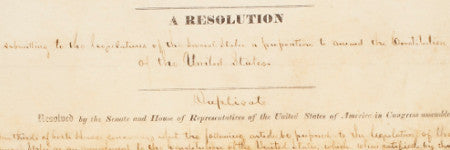 A RESOLUTION
submitting to the legislatures of the several States a proposition to amend the Constitution
of the United States.
Duplicate
Resolved by the Senate and House of Representatives of the United States of America in Congress assembled
two thirds of both Houses concurring that the following article be proposed to the legislatures of the
States as an amendment to the Constitution of the United States which when ratified by three